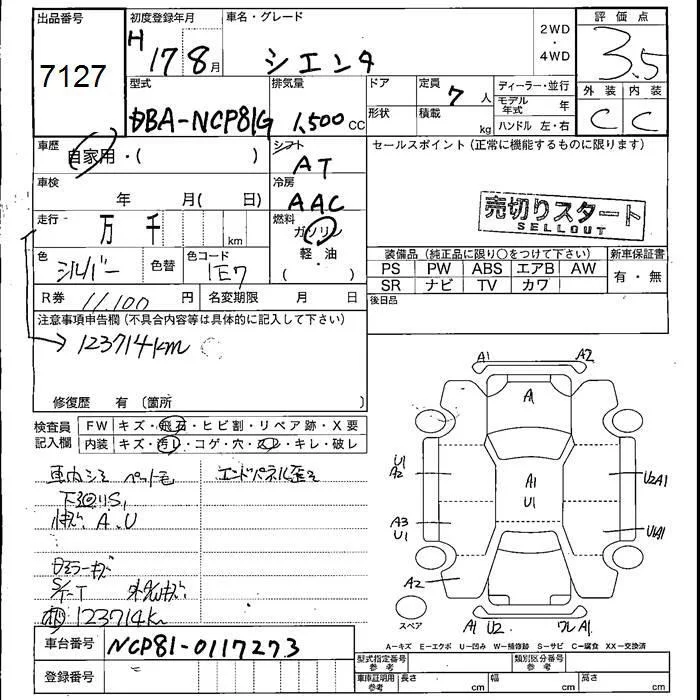 出品番号
7127
初度登録年月
H 17 8月
車名・グレード
シエンタ
2WD
・
4WD
評価点
3.5
外装 内装
C C
型式
DBA-NCP81G
排気量
1,500 CC
ドア
形状
定員
7 人
積載
kg
ディーラー・並行
モデル年式 年
ハンドル 左・右
車歴
自家用・( )
シフト
AT
車検
年 月( 日)
冷房
AAC
走行
万 千 km
燃料
ガソリン
軽・油
( )
色
シルバー
色替
色コード
1E7
R券 11,100 円
名変期限 月 日
セールスポイント (正常に機能するものに限ります)
売切りスタート
SELLOUT
装備品 (純正品に限り○をつけて下さい)
PS PW ABS エアB AW
SR ナビ TV カワ
新車保証書
有・無
後日品
注意事項申告欄 (不具合内容等は具体的に記入して下さい)
123714km
修復歴 有 (箇所 )
検査員記入欄
FW キズ・飛石・ヒビ割・リペア跡・X要
内装 キズ・汚レ・コゲ・穴・スレ・キレ・破レ
車内シミ ペット毛
下回りS,
A.U
ミラーキズ
123714km
エンドパネル歪ミ
A1 A2
A1
U1
A2
A1
U1
U2A1
A3
U1
U1A1
A2
スペア
A1 U2 ワレ A1
A-キズ E-エクボ U-凹み W-補修跡 S-サビ C-腐食 XX-交換済
車台番号 NCP81-0117273
登録番号
型式指定番号 参考
類別区分番号 参考
車庫証明用 参考
長さ cm
幅 cm
高さ cm